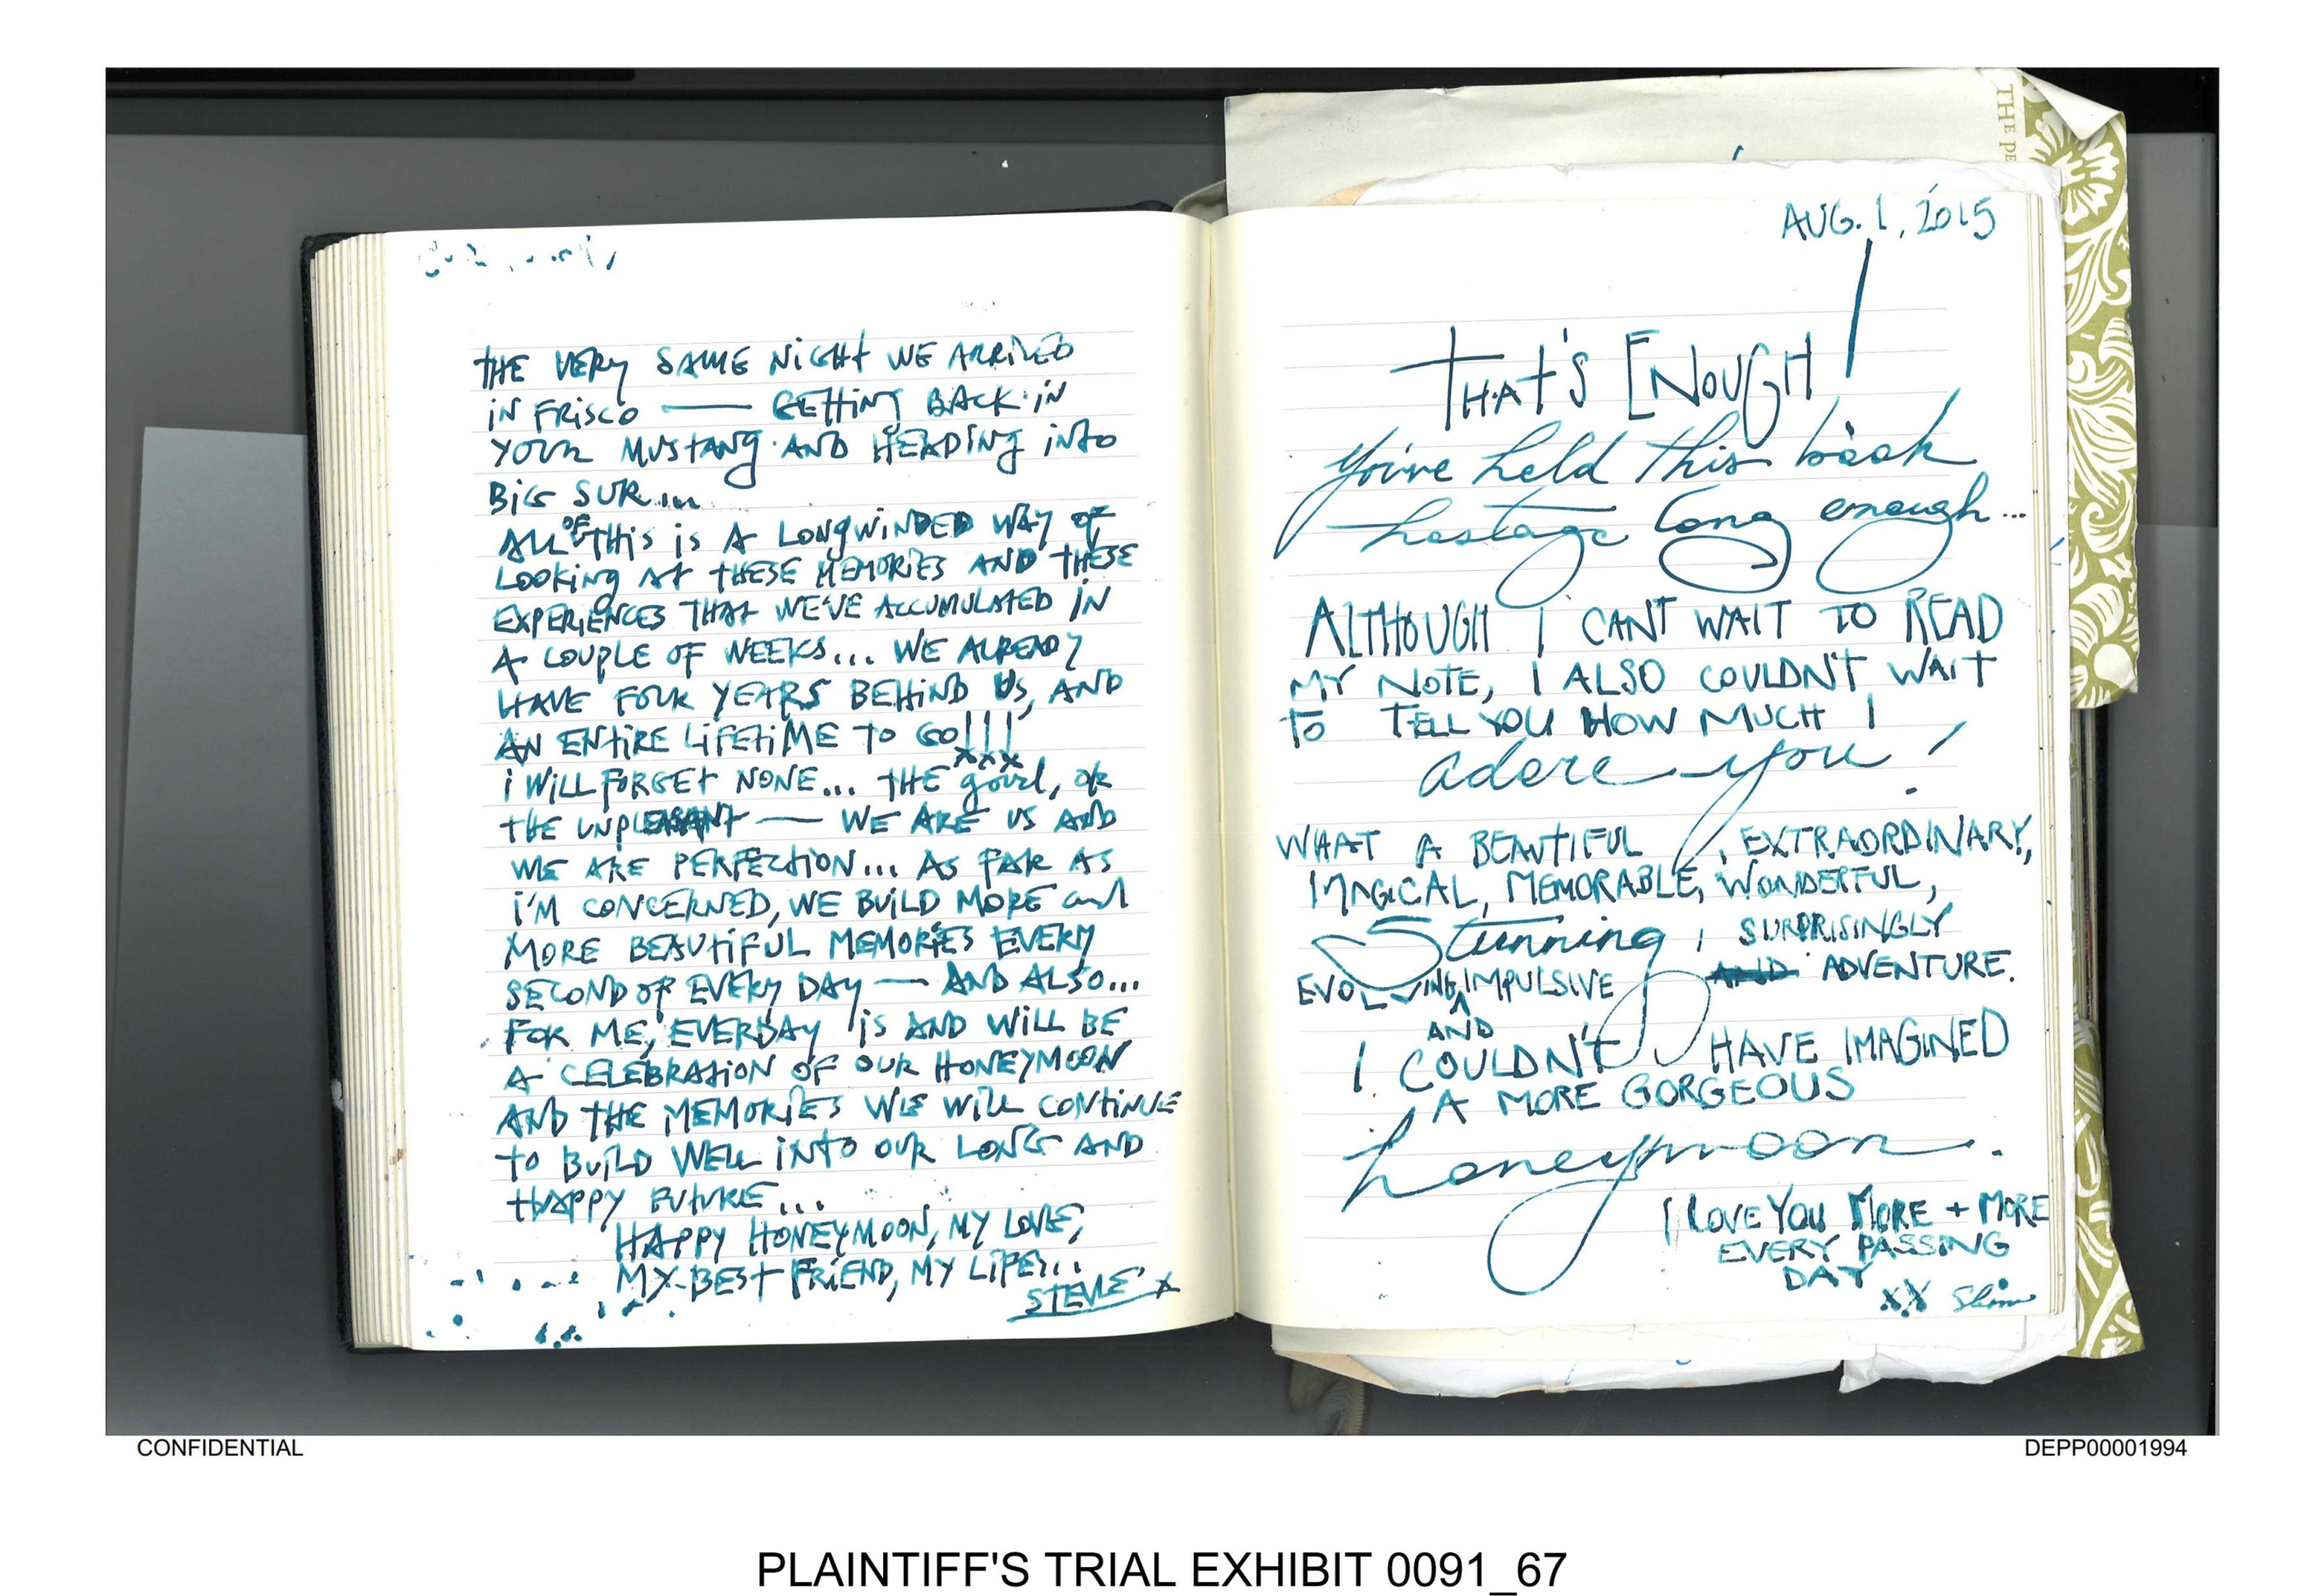 THE VERY SAME NIGHT WE ARRIVED
IN FRISCO — GETTING BACK IN
YOUR MUSTANG AND HEADING INTO
BIG SUR...
ALL OF THIS IS A LONGWINDED WAY OF
LOOKING AT THESE MEMORIES AND THESE
EXPERIENCES THAT WE'VE ACCUMULATED IN
A COUPLE OF WEEKS... WE ALREADY
HAVE FOUR YEARS BEHIND US, AND
AN ENTIRE LIFETIME TO GO!!!
xxx
I WILL FORGET NONE... THE good, OR
THE UNPLEASANT — WE ARE US AND
WE ARE PERFECTION... AS FAR AS
I'M CONCERNED, WE BUILD MORE and
MORE BEAUTIFUL MEMORIES EVERY
SECOND OF EVERY DAY — AND ALSO...
FOR ME, EVERDAY IS AND WILL BE
A CELEBRATION OF OUR HONEYMOON
AND THE MEMORIES WE WILL CONTINUE
TO BUILD WELL INTO OUR LONG AND
HAPPY FUTURE...
HAPPY HONEYMOON, MY LOVE,
MY BEST FRIEND, MY LIFE...
STEVE x
THE PE
AUG. 1, 2015
THAT'S ENOUGH!
You've held this book
hostage long enough...
ALTHOUGH I CANT WAIT TO READ
MY NOTE, I ALSO COULDN'T WAIT
TO TELL YOU HOW MUCH I
adore you!
WHAT A BEAUTIFUL, EXTRAORDINARY,
MAGICAL, MEMORABLE, WONDERFUL,
Stunning, SURPRISINGLY
EVOLVING, IMPULSIVE AND ADVENTURE.
AND
I COULDN'T HAVE IMAGINED
A MORE GORGEOUS
honeymoon.
I LOVE YOU MORE + MORE
EVERY PASSING
DAY
XX Slim
CONFIDENTIAL
DEPP00001994
PLAINTIFF'S TRIAL EXHIBIT 0091_67